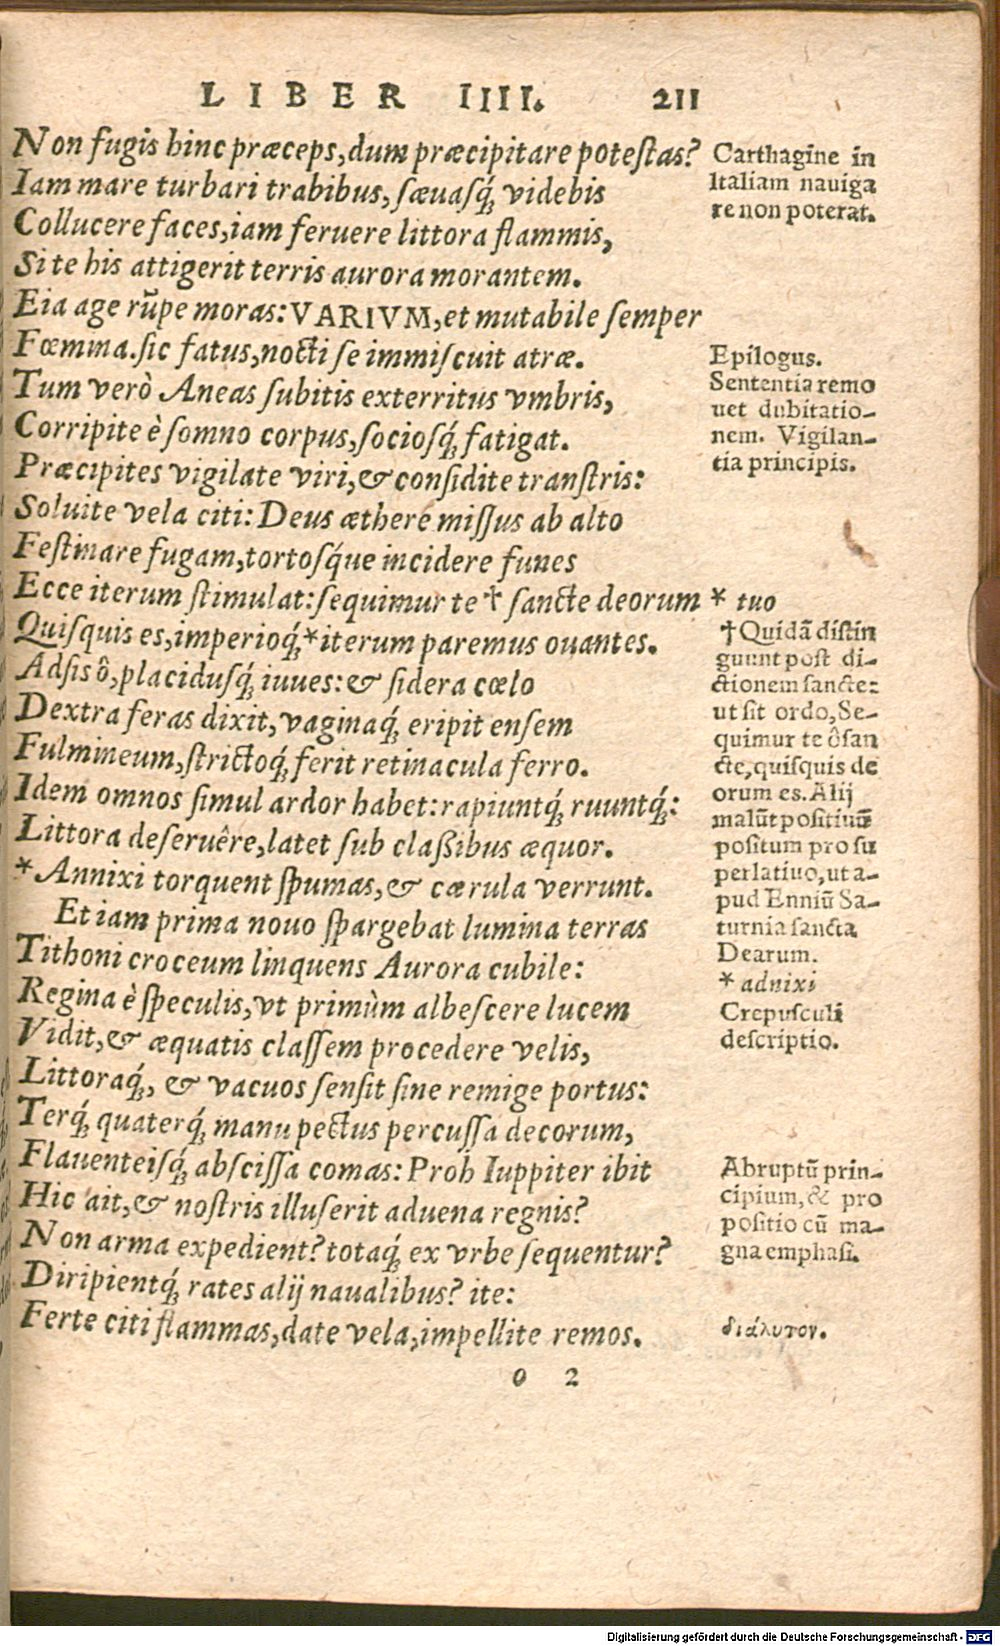 LIBER IIII. 211
Non fugis hinc præceps, dum præcipitare potestas?
Iam mare turbari trabibus, sæuasq́; videbis
Collucere faces, iam feruere littora flammis,
Si te his attigerit terris aurora morantem.
Eia age rūpe moras: VARIVM, et mutabile semper
Fœmina. sic fatus, nocti se immiscuit atræ.
Tum verò Aneas subitis exterritus vmbris,
Corripit e è somno corpus, sociosq́; fatigat.
Præcipites vigilate viri, & considite transtris:
Soluite vela citi: Deus æthere missus ab alto
Festinare fugam, tortosq́ue incidere funes
Ecce iterum stimulat: sequimur te † sancte deorum
Quisquis es, imperioq́; * iterum paremus ouantes.
Adsis ô, placidusq́; iuues: & sidera cœlo
Dextra feras dixit, vaginaq́; eripit ensem
Fulmineum, strictoq́; ferit retinacula ferro.
Idem omnos simul ardor habet: rapiuntq́; ruuntq́;:
Littora deseruêre, latet sub classibus æquor.
* Annixi torquent spumas, & cærula verrunt.
Et iam prima nouo spargebat lumina terras
Tithoni croceum linquens Aurora cubile:
Regina è speculis, vt primùm albescere lucem
Vidit, & æquatis classem procedere velis,
Littoraq́; & vacuos sensit sine remige portus:
Terq́; quaterq́; manu pectus percussa decorum,
Flauenteisq́; abscissa comas: Proh Iuppiter ibit
Hic ait, & nostris illuserit aduena regnis?
Non arma expedient? totaq́; ex vrbe sequentur?
Diripientq́; rates alij naualibus? ite:
Ferte citi flammas, date vela, impellite remos.
o 2
Carthagine in
Italiam nauiga
re non poterat.
Epilogus.
Sententia remo
uet dubitatio-
nem. Vigilan-
tia principis.
* tuo
† Quidā distin
guunt post di-
ctionem sancte:
ut sit ordo, Se-
quimur te ô san
cte, quisquis de
orum es. Alij
malūt positiuū
positum pro su
perlatiuo, ut a-
pud Enniū Sa-
turnia sancta
Dearum.
* adnixi
Crepusculi
descriptio.
Abruptū prin-
cipium, & pro
positio cū ma-
gna emphasi.
διάλυτον.
Digitalisierung gefördert durch die Deutsche Forschungsgemeinschaft - DFG